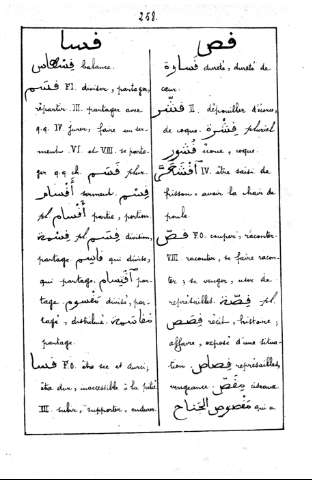 258.
قسا
قسطاس balance.
قسم F I. diviser, partager,
répartir. III. partager avec
q.q. IV jurer, faire un ser-
ment. VI et VIII. se parta-
ger q.q ch. قسم plur.
أقسام serment. قسم
pl أقسام partie, portion
قسمة pl قسم division,
partage قاسم qui divise,
qui partage. اقتسام par-
tage. مقسوم divisé, par-
tagé, distribué. مقاسمة
partage.
قسا F O. être sec et durci;
être dur, inaccessible à la pitié
III. subir, supporter, endurer.
قص
قساوة dureté, dureté de
cœur.
قشر II. dépouiller d'écorce,
de coque. قشرة pluriel
قشور écorce, coque.
اقشعر IV. être saisi de
frisson, avoir la chair de
poule
قص F O. couper; raconter.
VIII raconter, se faire racon-
ter; se venger, user de
représailles. قصة pl
قصص récit, histoire,
affaire, exposé d'une situa-
tion. قصاص représailles,
vengeance. مقص ciseaux.
مقصوص الجناح qui a